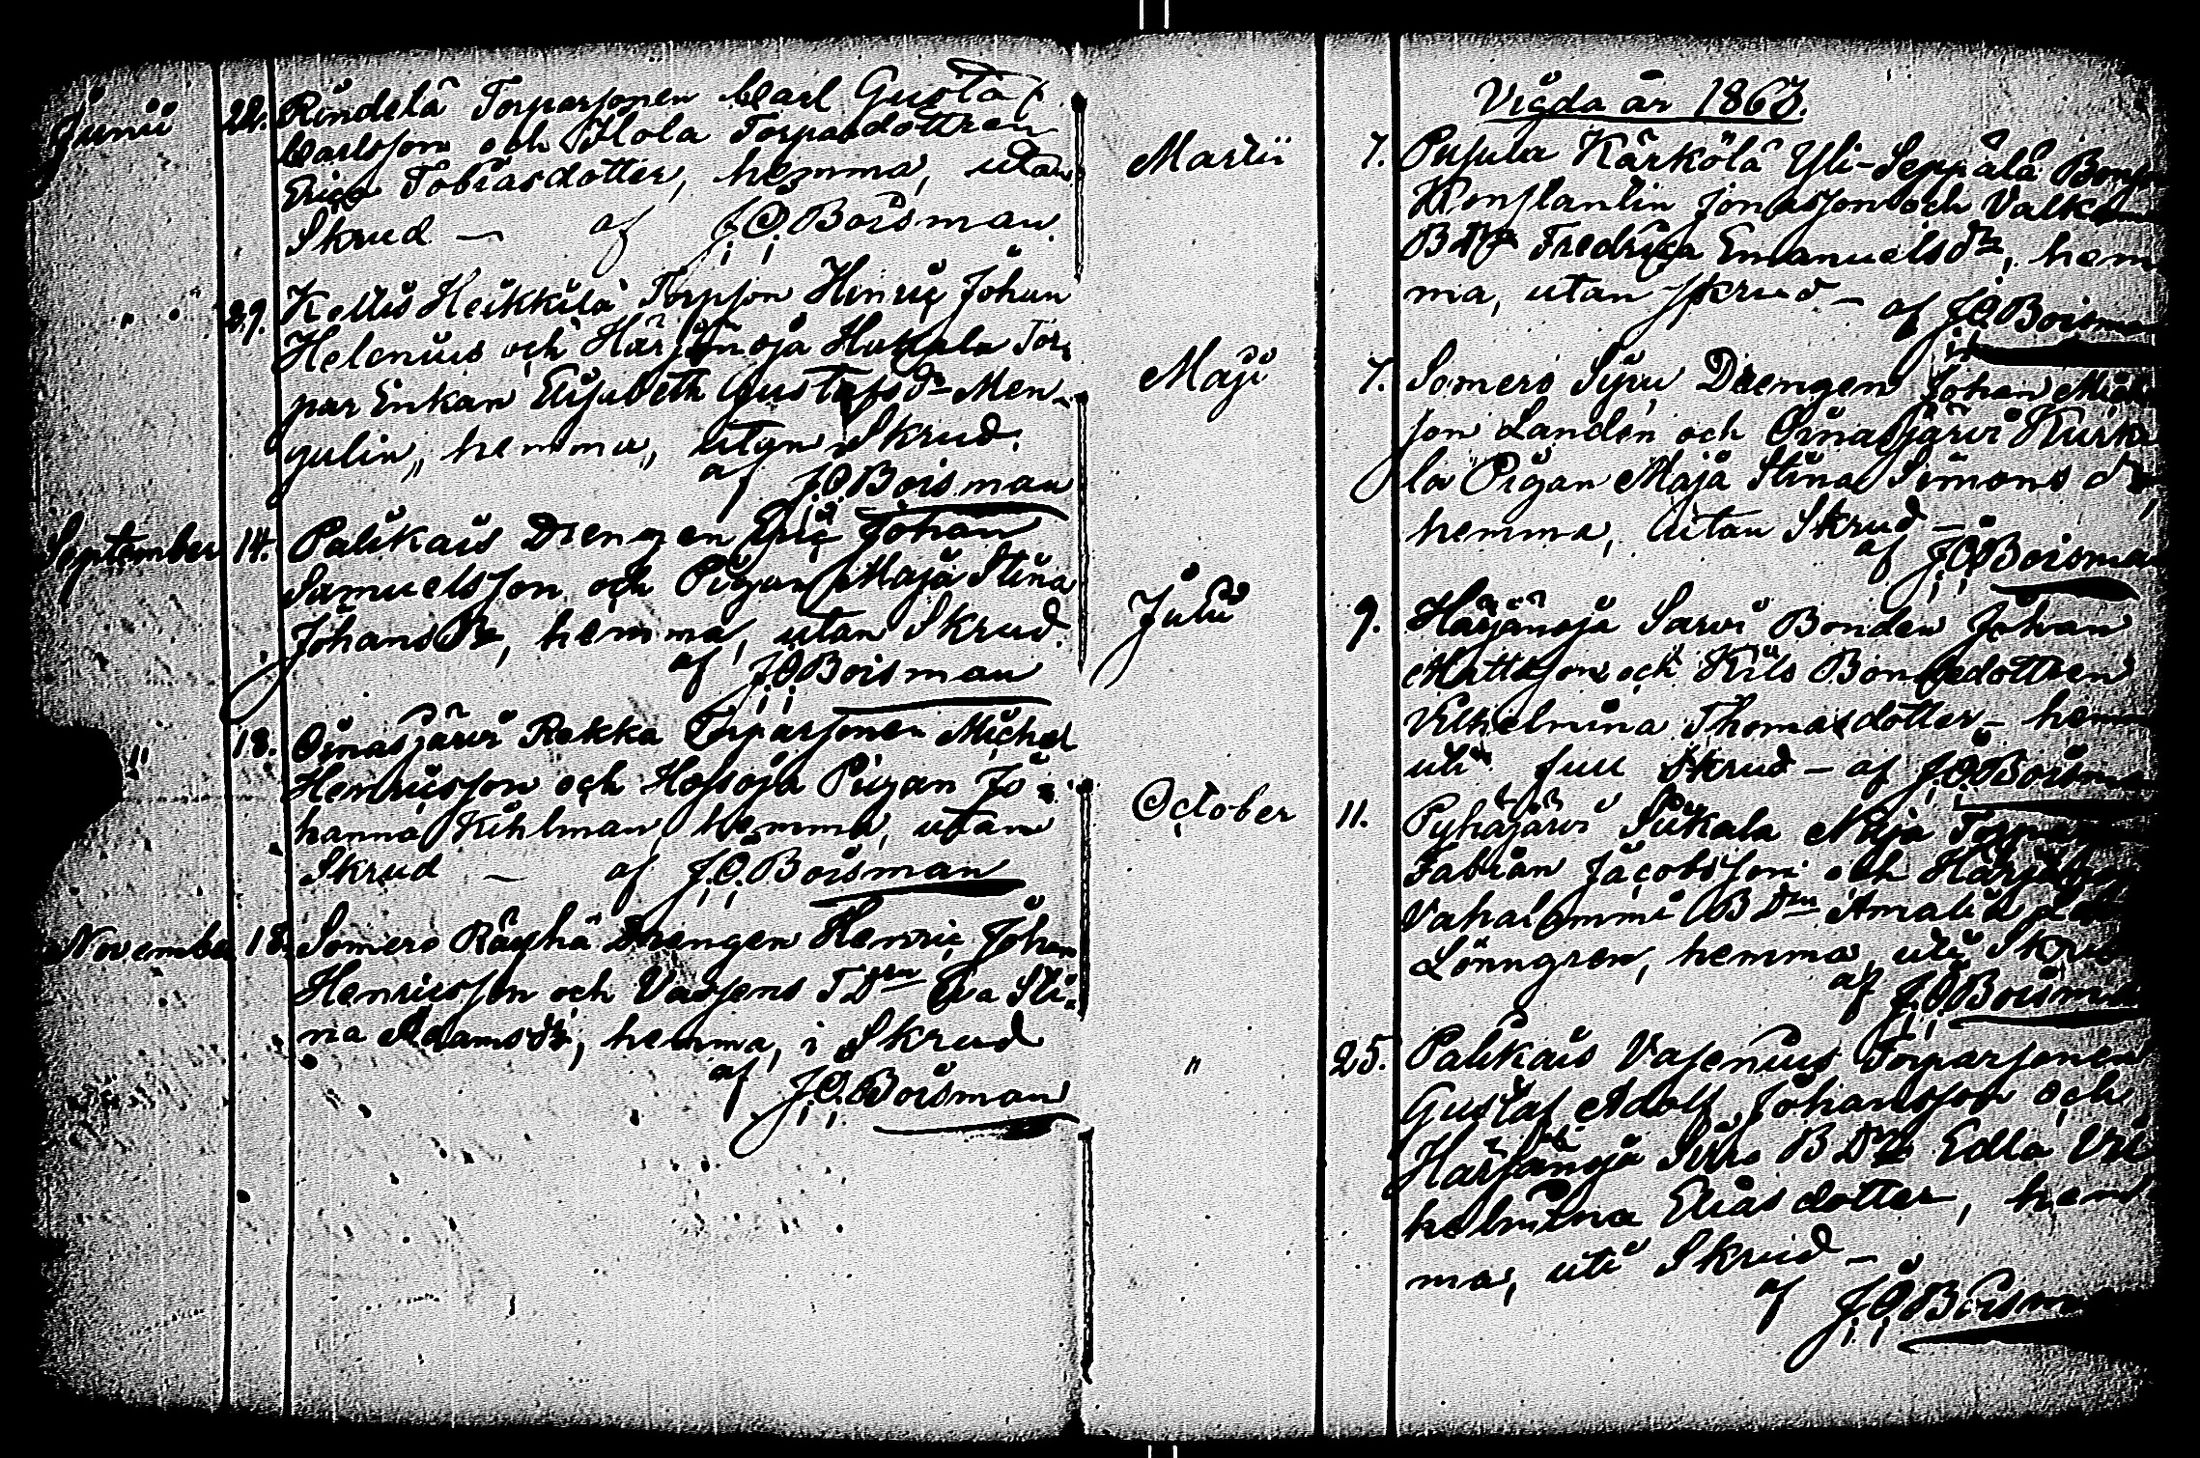 Junii 22. Rindelä Torparsonen Carl Gustaf
Carlsson och Hola Torpardottren
Erica Tobiasdotter, hemma, utan
Skrud — af J.O. Boisman
" " 29. Kellis Heikkilä Torpson Hinric Johan
Helenius och Härjänoja Torpar
par Enkan Elisabeth Gustafsdr Men-
gelin, hemma, utan Skrud.
af J.O. Boisman
September 14. Palikais Drengen Eric Johan
Samuelsson och Pigan Maja Stina
Johansdr, hemma, utan Skrud.
af J.O. Boisman
" 18. Oinasjärvi Rekka Torparsonen Michel
Henricsson och Hossoja Pigan Jo-
hanna Kihlman hemma, utan
Skrud — af J.O. Boisman
November 18. Somero Räyhä Drengen Henric Johan
Henricsson och Vasjens T.Dren Eva Sti-
na Adamsdr, hemma, i Skrud
af J.O. Boisman
Vigda år 1867.
Martii 7. Pusula Kärkölä Yli-Seppälä
Konstantin Jonasson och
B.Dr Fredrica Emanuelsdr, hem-
ma, utan skrud — af J.O. Boisman
Maji 7. Somero Syri Drengen Johan
son Landén och Oinasjärvi Kurki
la Pigan Maja Stina Simonsdr,
hemma, utan Skrud —
af J.O. Boisman
Julii 9. Härjänoja Sarvi Bonden Johan
Mattsson och Kils Bondedottren
Vilhelmina Thomasdotter — hemma
uti full Skrud — af J.O. Boisman
October 11. Pyhäjärvi Siikala Maja
Fabian Jacobsson och
Vahalammi B.Dren Amalia
Lönngren, hemma, uti Skrud
af J.O. Boisman
" 25. Palikais Vasenius Torparsonen
Gustaf Adolf Johansson och
Härjänoja B.Dr Edla Vil
helmina Eliasdotter, hem
ma, uti Skrud —
af J.O. Boisman